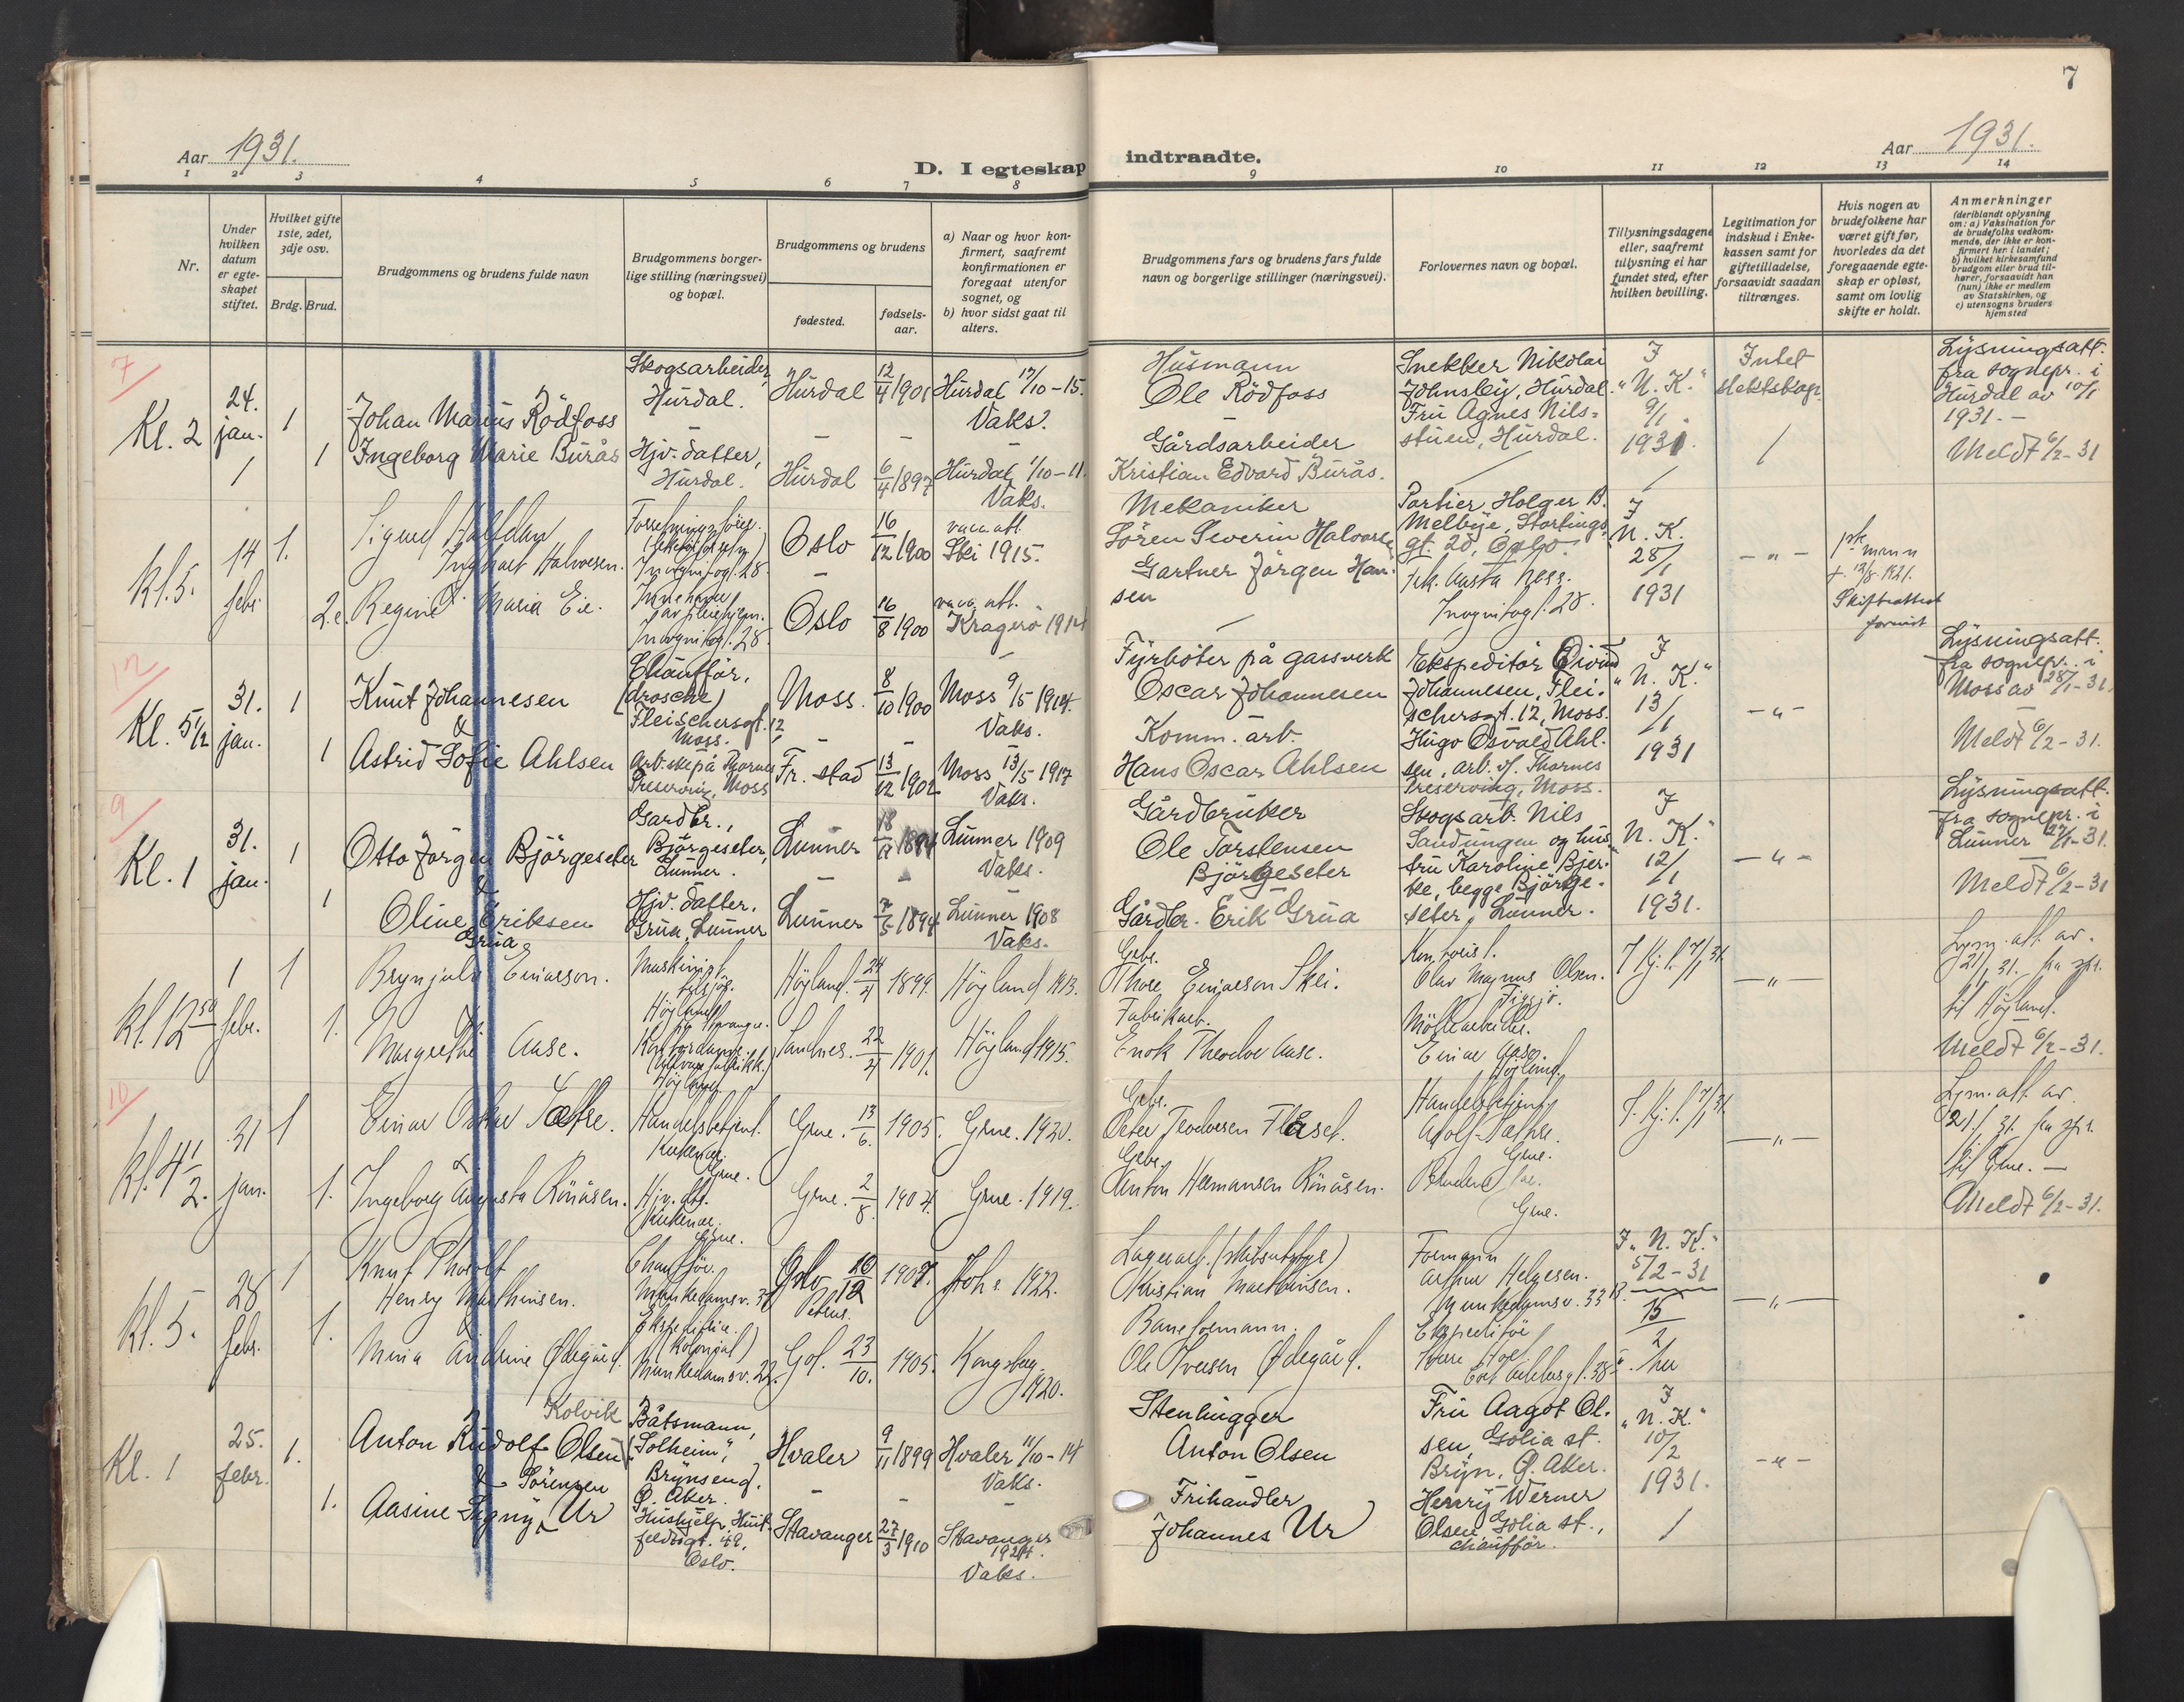 7
Aar 1931.
D. I egteskap indtraadte.
Aar 1931.
1 2 3 4 5 6 7 8 9 10 11 12 13 14
Nr.
Under hvilken datum er egte-skapet stiftet.
Hvilket gifte 1ste, 2det, 3dje osv.
Brdg. Brud.
Brudgommens og brudens fulde navn
Brudgommens borger-lige stilling (næringsvei) og bopæl.
Brudgommens og brudens
fødested.
fødsels-aar.
a) Naar og hvor kon-firmert, saafremt konfirmationen er foregaat utenfor sognet, og
b) hvor sidst gaat til alters.
Brudgommens fars og brudens fars fulde navn og borgerlige stillinger (næringsvei).
Forlovernes navn og bopæl.
Tillysningsdagene eller, saafremt tillysning ei har fundet sted, efter hvilken bevilling.
Legitimation for indskud i Enke-kassen samt for giftetilladelse, forsaavidt saadan tiltrænges.
Hvis nogen av brudefolkene har været gift før, hvorledes da det foregaaende egte-skap er opløst, samt om lovlig skifte er holdt.
Anmerkninger
(deriblandt oplysning om: a) Vaksination for de brudefolks vedkom-mende, der ikke er kon-firmert her i landet; b) hvilket kirkesamfund brudgom eller brud til-hører, forsaavidt han (hun) ikke er medlem av Statskirken, og c) utensogns bruders hjemsted
7
Kl. 2
24. jan.
1
Johan Marius Rödfoss
Skogsarbeider, Hurdal.
Hurdal
12/4 1901
Hurdal 17/10-15. Vaks.
Husmann
Ole Rödfoss
Snekker Nikolai Johnsby, Hurdal.
Fru Agnes Nils-stuen, Hurdal.
I "N. K." 9/1 1931
Intet slektskap
Lysningsatt. fra sognepr. i Hurdal av 10/1 1931. -
Meldt 6/2-31
1
Ingeborg Marie Burås
Hjv. datter, Hurdal.
Hurdal
6/4 1897
Hurdal 1/10-11. Vaks.
Gårdsarbeider
Kristian Edvard Burås.
Kl. 5.
14 febr.
1.
Sigurd Halfdan
Inghart Halvorsen.
Inkognitogt. 28.
Oslo
16/12 1900
vacc. att. Skei 1915.
Mekaniker
Sören Severin Halvorsen
Portier Holger B. Melbye, Stortings gt. 20, Oslo.
I N. K. 28/1 1931
- " -
1ste mann
†. 13/8. 1921.
Skifteattest forevist
2. e.
Regine Maria Eie.
Innehaver av pleiehjem. Inkognitogt. 28.
Oslo
16/8 1900
vacc. att. Kragerö 1914
Gartner Jörgen Han-sen
Frk. Aasta Ness. Inkognitogt. 28.
12
Kl. 5½
31. jan.
1
Knut Johannesen
&
Chaufför, (drosche) Fleischersgt. 12 Moss.
Moss.
8/10 1900
Moss 9/5 1914. Vaks.
Fyrböter på gassverk
Oscar Johannesen
Ekspeditör Eivind Johannesen, Flei-schersgt. 12, Moss.
I "N. K." 13/1 1931
- " -
Lysningsatt. fra sognepr. i Moss av 28/1-31.
Meldt 6/2-31.
1
Astrid Sofie Ahlsen
Arb.ske på Thornes Preserving, Moss
Fr. stad
13/12 1902
Moss 13/5 1917 Vaks.
Komm. arb.
Hans Oscar Ahlsen
Hugo Osvald Ahl-sen, arb. v/ Thornes Preserving, Moss.
9
Kl. 1
31. jan.
1
Otto Jörgen Björgeseter
&
Gardbr., Björgeseter, Lunner.
Lunner
Lunner 1909 Vaks.
Gårdbruker
Ole Torstensen Björgeseter
Skogsarb. Nils Sandungen og hus-fru Karoline Bjer-ke, begge Björge-seter, Lunner.
I N. K." 12/1 1931.
- " -
Lysningsatt. fra sognepr. i Lunner 27/1-31.
Meldt 6/2-31
1
Oline Eriksen
Grua
Hjv. datter. Grua, Lunner
Lunner
7/5 1894
Lunner 1908 Vaks.
Gårdbr. Erik Grua
Kl. 12 30
1 febr.
1
Brynjulv Einarson.
Maskinist
Höyland
Höyland.
24/4 1899.
Höyland 1913.
Gbr.
Thore Einarson Skei.
Kontorist.
Olav Magnus Olsen.
- " -
Lysn. att. av. 21/1 31. fra spr. til Höyland.
Meldt 6/2-31.
1.
Margrethe Aase.
Kontordame
Höyland
Sandnes.
22/4 1901.
Höyland 1915.
Fabrikarb.
Enok Theodor Aase.
Einar Aase. Höyland.
10
Kl. 4 1/2.
31 jan.
1
Einar Oskar Sætre.
&
Handelsbetjent. Kirkenær. Grue.
Grue.
13/6. 1905.
Grue. 1920.
Gbr.
Peter Teodorsen Flaset.
Handelsbetjent
Adolf Sætre. Grue.
- " -
Lysn. att. av 21/1. 31. fra spr. til Grue. -
Meldt 6/2-31.
1.
Ingeborg Augusta Rönåsen.
Hjv. dtr. Kirkenær. Grue.
Grue.
2/8. 1904.
Grue. 1919.
Gbr.
Anton Hermansen Rönåsen.
Grue.
Kl. 5.
28 febr.
1
Knut Thorolf
Henry Mathinsen.
Chaufför. Munkedamsv.
Oslo Petrus.
10/12 1907.
Joh s 1922.
Kristian Mathinsen.
Formann
Arthur Helgesen. Munkedamsv. 33
I „N. K." 5/2-31
15/2 her
- " -
1.
Mina Andrine Ødegård.
Ekspeditrice. (kolonial) Munkedamsv. 22.
Gol.
23/10. 1905.
Kongsberg. 1920.
Baneformann.
Ole Iversen Ødegård.
Ekspeditör
Kl. 1
25. febr.
1.
Kolvik
Anton Rudolf Olsen
&
Båtsmann, "Solheim", Brynseng. Ö. Aker.
Hvaler
9/11 1899
Hvaler 11/10-14 Vaks.
Stenhugger
Anton Olsen
Fru Aagot Ol-sen, Golia st. Bryn, Ö. Aker.
I „N. K." 10/2 1931.
- " -
1.
Sörensen
Aasine Signy Ur
Hushjelp, Huit-feldtsgt. 49, Oslo.
Stavanger
27/3 1910
Stavanger 1924. Vaks.
Frihandler
Johannes Ur
Henry Werner Olsen, Golia st., chaufför.